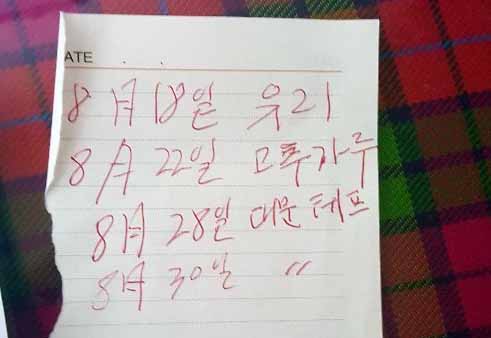 ATE . .
8月18일 유리
8月 22일 고추가루
8月 28일 대문 테프
8月 30일 〃